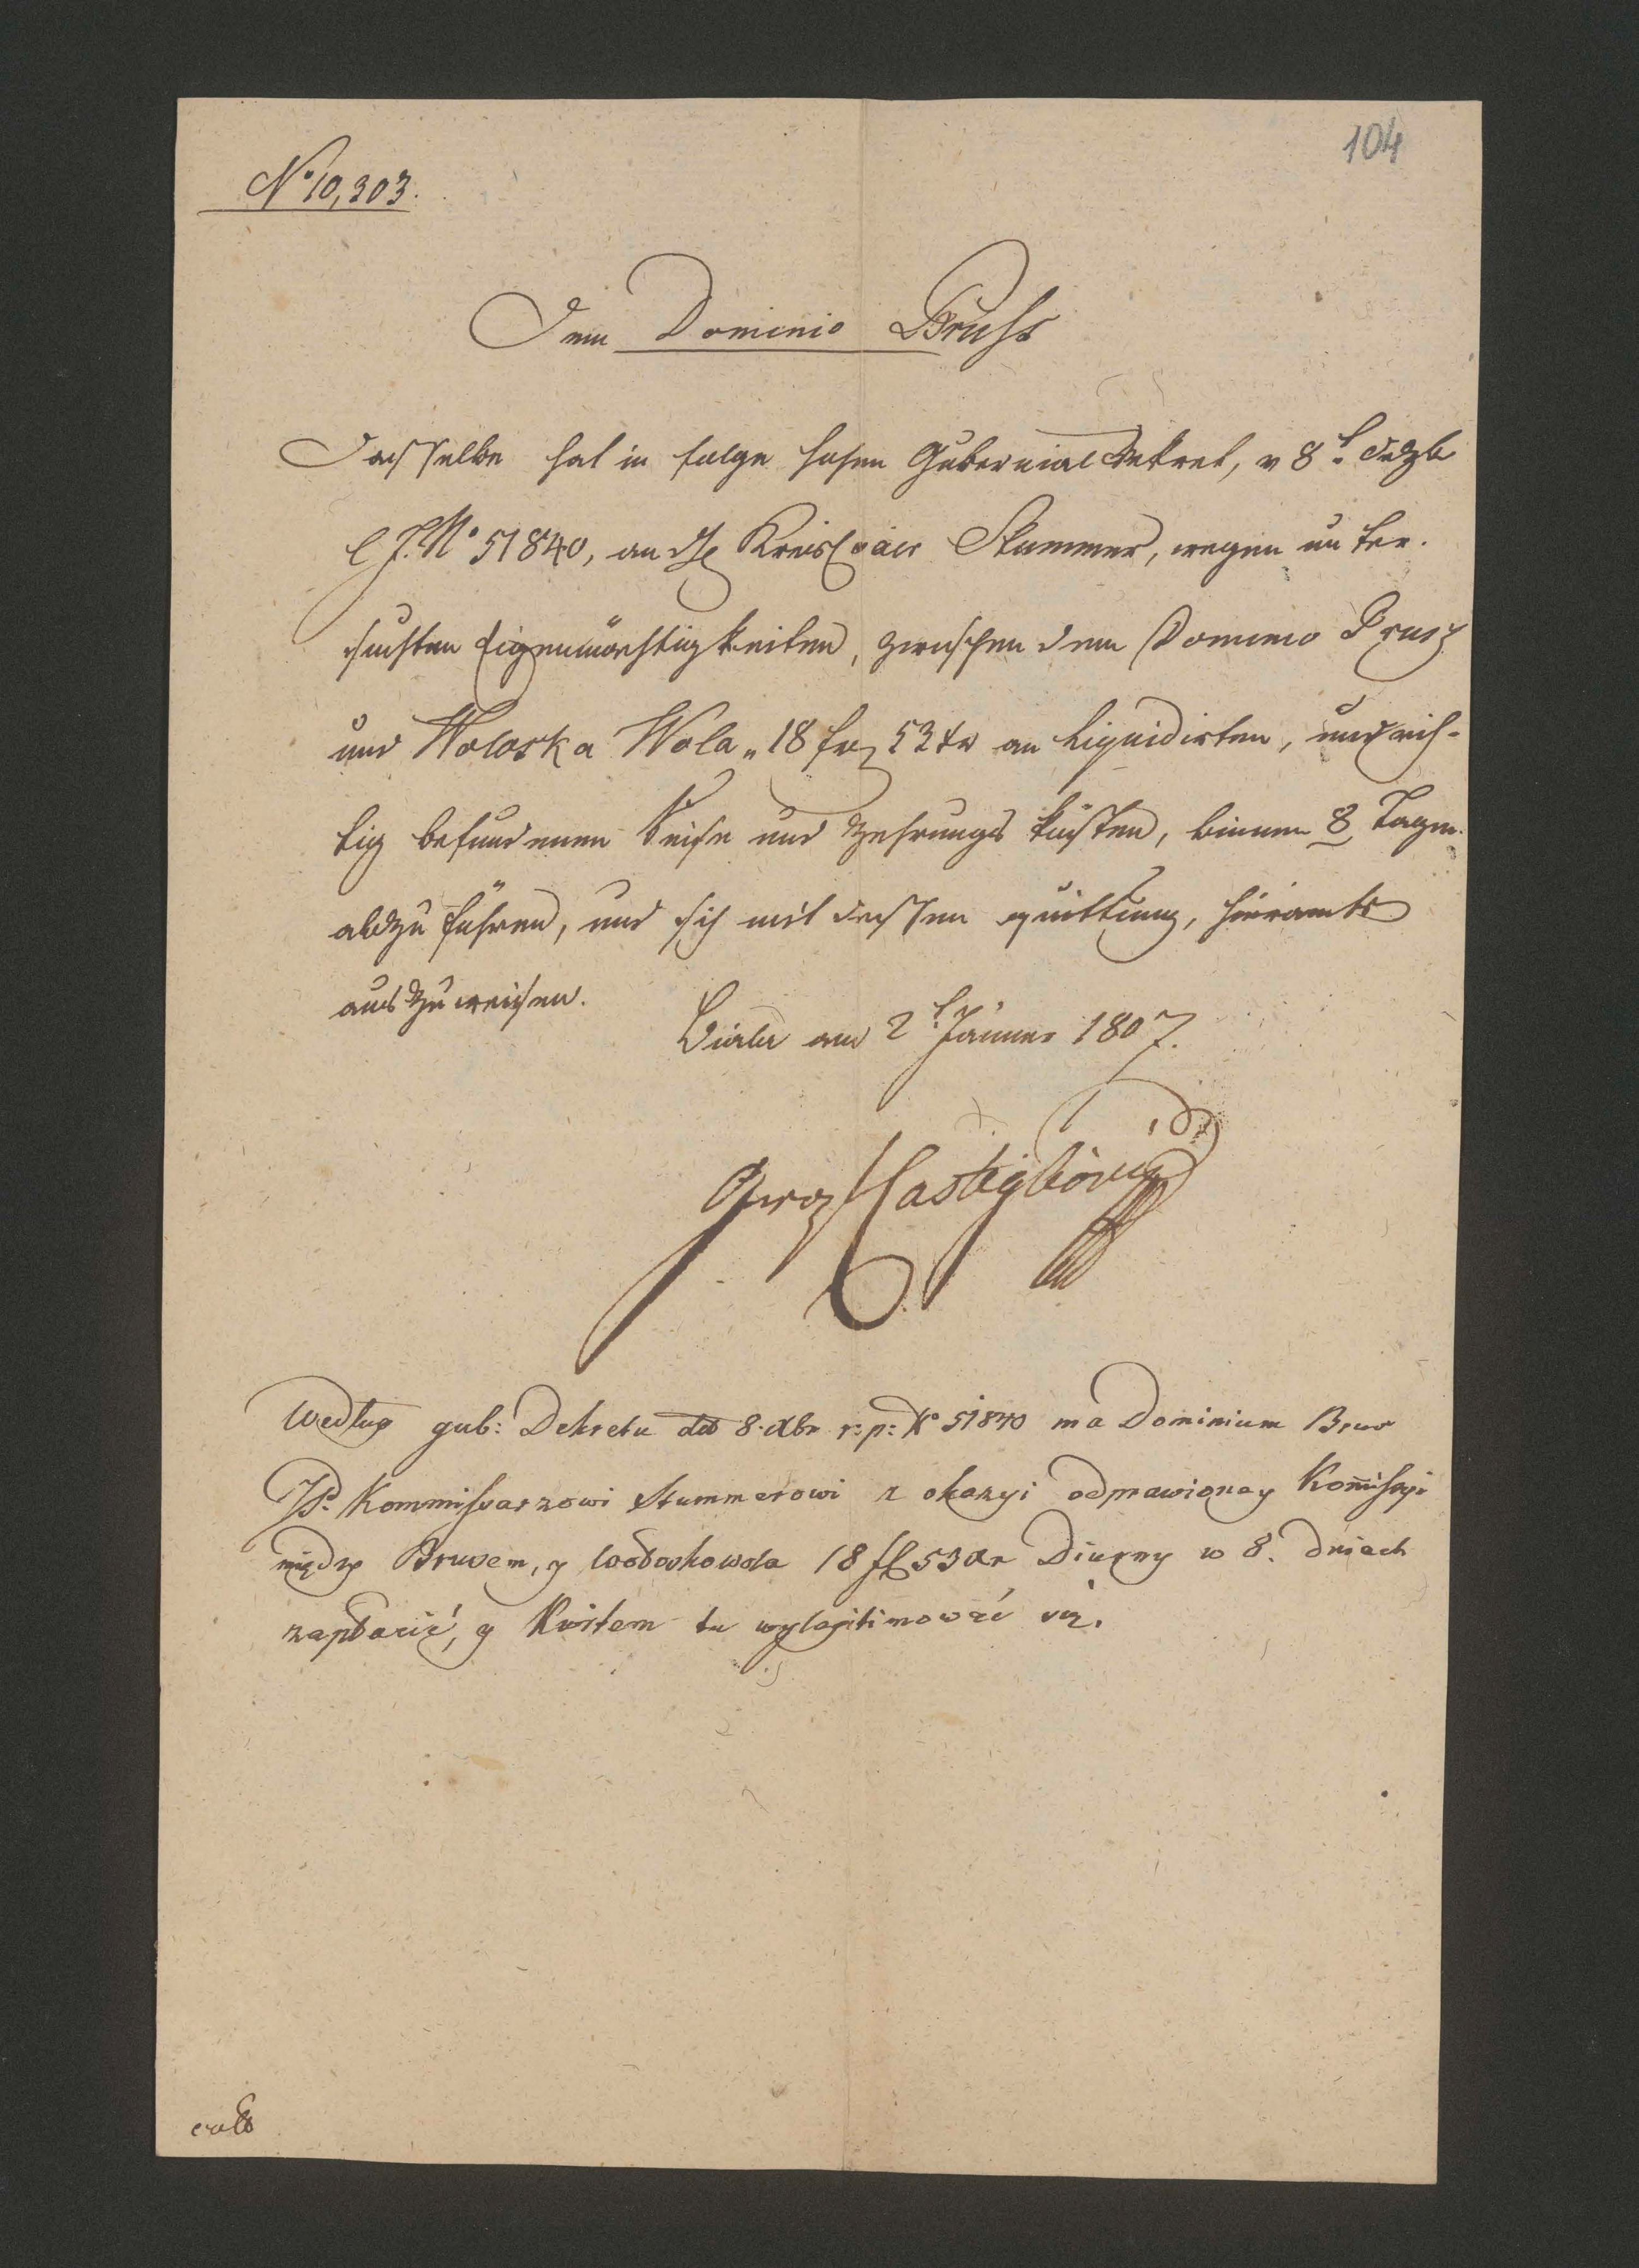 104
No 10,303.
Dem Dominio Bruss
Dasselbe hat in folge hohen Gubernial Dekret, v 8t Dezb
l. J. No 51840, an H Kreiscoär Stummer, wegen unter-
suchten Eigenmächtigkeiten, zwischen dem Dominio Brusz
und Woloska Wola „ 18 fr 53 xr an liquidirten, und rich-
tig befundenen Reise und Zehrungs kösten, binnen 8 Tagen
abzu führen, und sich mit dessen quittung, hieramts
auszuweisen.
Biala am 2t Jänner 1807.
Castiglioni
Według gub: Dekretu dto 8. Xbr r: p: No 51840 ma Dominium Brus
JP. Kommissarzowi Stummerowi z okazyi odprawioney Kommissyi
między Brusem, y Wołoskowola 18 fl 53 Xr Diurny w 8. dniach
zapłacić, y Kwitem tu wylegitimować się.